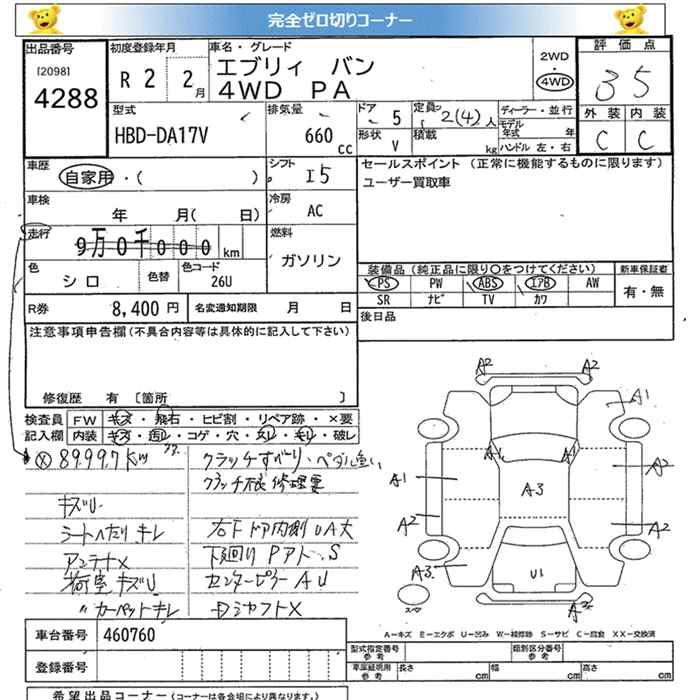 完全ゼロ切りコーナー
出品番号
[2098]
4288
初度登録年月
R 2 2月
車名・グレード
エブリィ バン
4WD PA
2WD
4WD
評価点
3 5
外装 内装
C C
型式
HBD-DA17V
排気量
660 cc
ドア 5
形状 V
定員 2(4)人
積載 kg
ディーラー・並行
モデル年式 年
ハンドル 左・右
車歴
自家用・( )
シフト
I5
セールスポイント (正常に機能するものに限ります)
ユーザー買取車
車検
年 月( 日)
冷房
AC
走行
9万0千000 km
燃料
ガソリン
色
シロ
色替
色コード
26U
装備品(純正品に限り○をつけてください)
PS PW ABS エアB AW
SR ナビ TV カワ
新車保証書
有・無
R券 8,400 円
名変通知期限 月 日
後日品
注意事項申告欄(不具合内容等は具体的に記入して下さい)
修復歴 有 [箇所 ]
検査員記入欄
FW キズ・飛石・ヒビ割・リペア跡・×要
内装 キズ・汚レ・コゲ・穴・スレ・キレ・破レ
89997km
クラッチすべり、ペダル重い
クラッチ不良 修理要
キズU
シートへたり キレ
アンテナ×
荷室 キズU
〃 カーペットキレ
右Fドア内側UA大
下廻り Pアト、S
センターピラー AU
Dシャフト×
A2 A2
A1
A1 A1
A1 A3 A2
A2 A2
A3 U1
A2
スペア
A－キズ E－エクボ U－凹み W－補修跡 S－サビ C－腐食 XX－交換済
車台番号 460760
登録番号
型式指定番号 参考
類別区分番号 参考
車庫証明用 参考
長さ cm 幅 cm 高さ cm
希望出品コーナー(コーナーは各会場により異なります。)